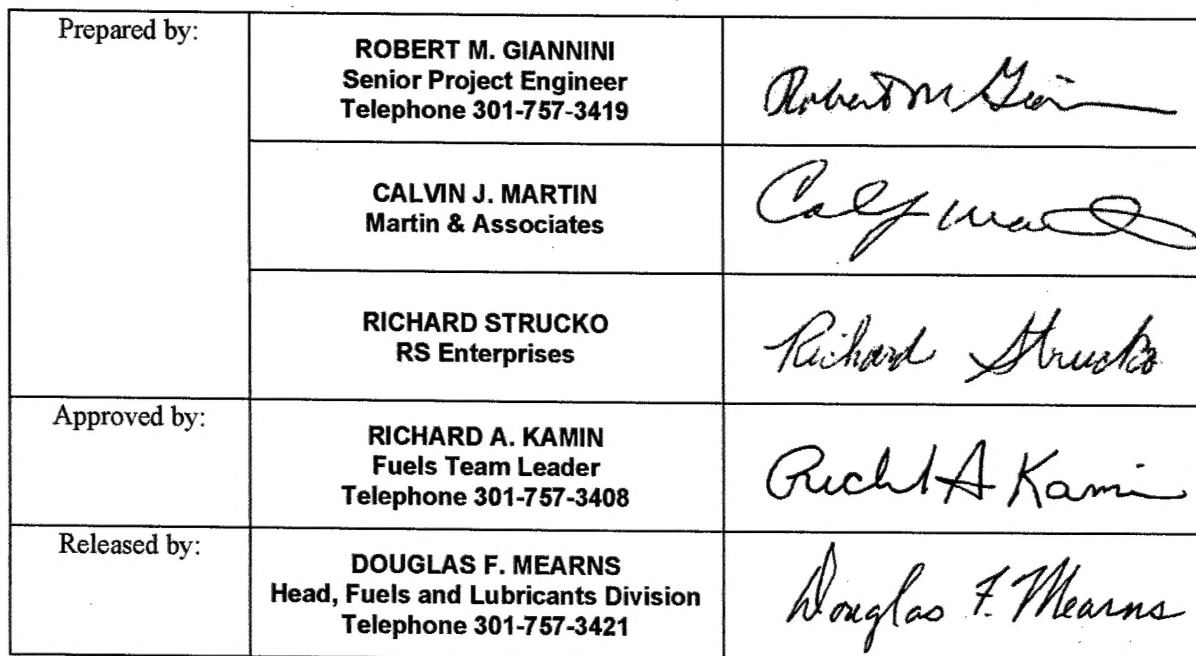 Prepared by:
ROBERT M. GIANNINI
Senior Project Engineer
Telephone 301-757-3419
Robert M Gian
CALVIN J. MARTIN
Martin & Associates
Cal J Mart
RICHARD STRUCKO
RS Enterprises
Richard Strucko
Approved by:
RICHARD A. KAMIN
Fuels Team Leader
Telephone 301-757-3408
Richd A Kamin
Released by:
DOUGLAS F. MEARNS
Head, Fuels and Lubricants Division
Telephone 301-757-3421
Douglas F. Mearns